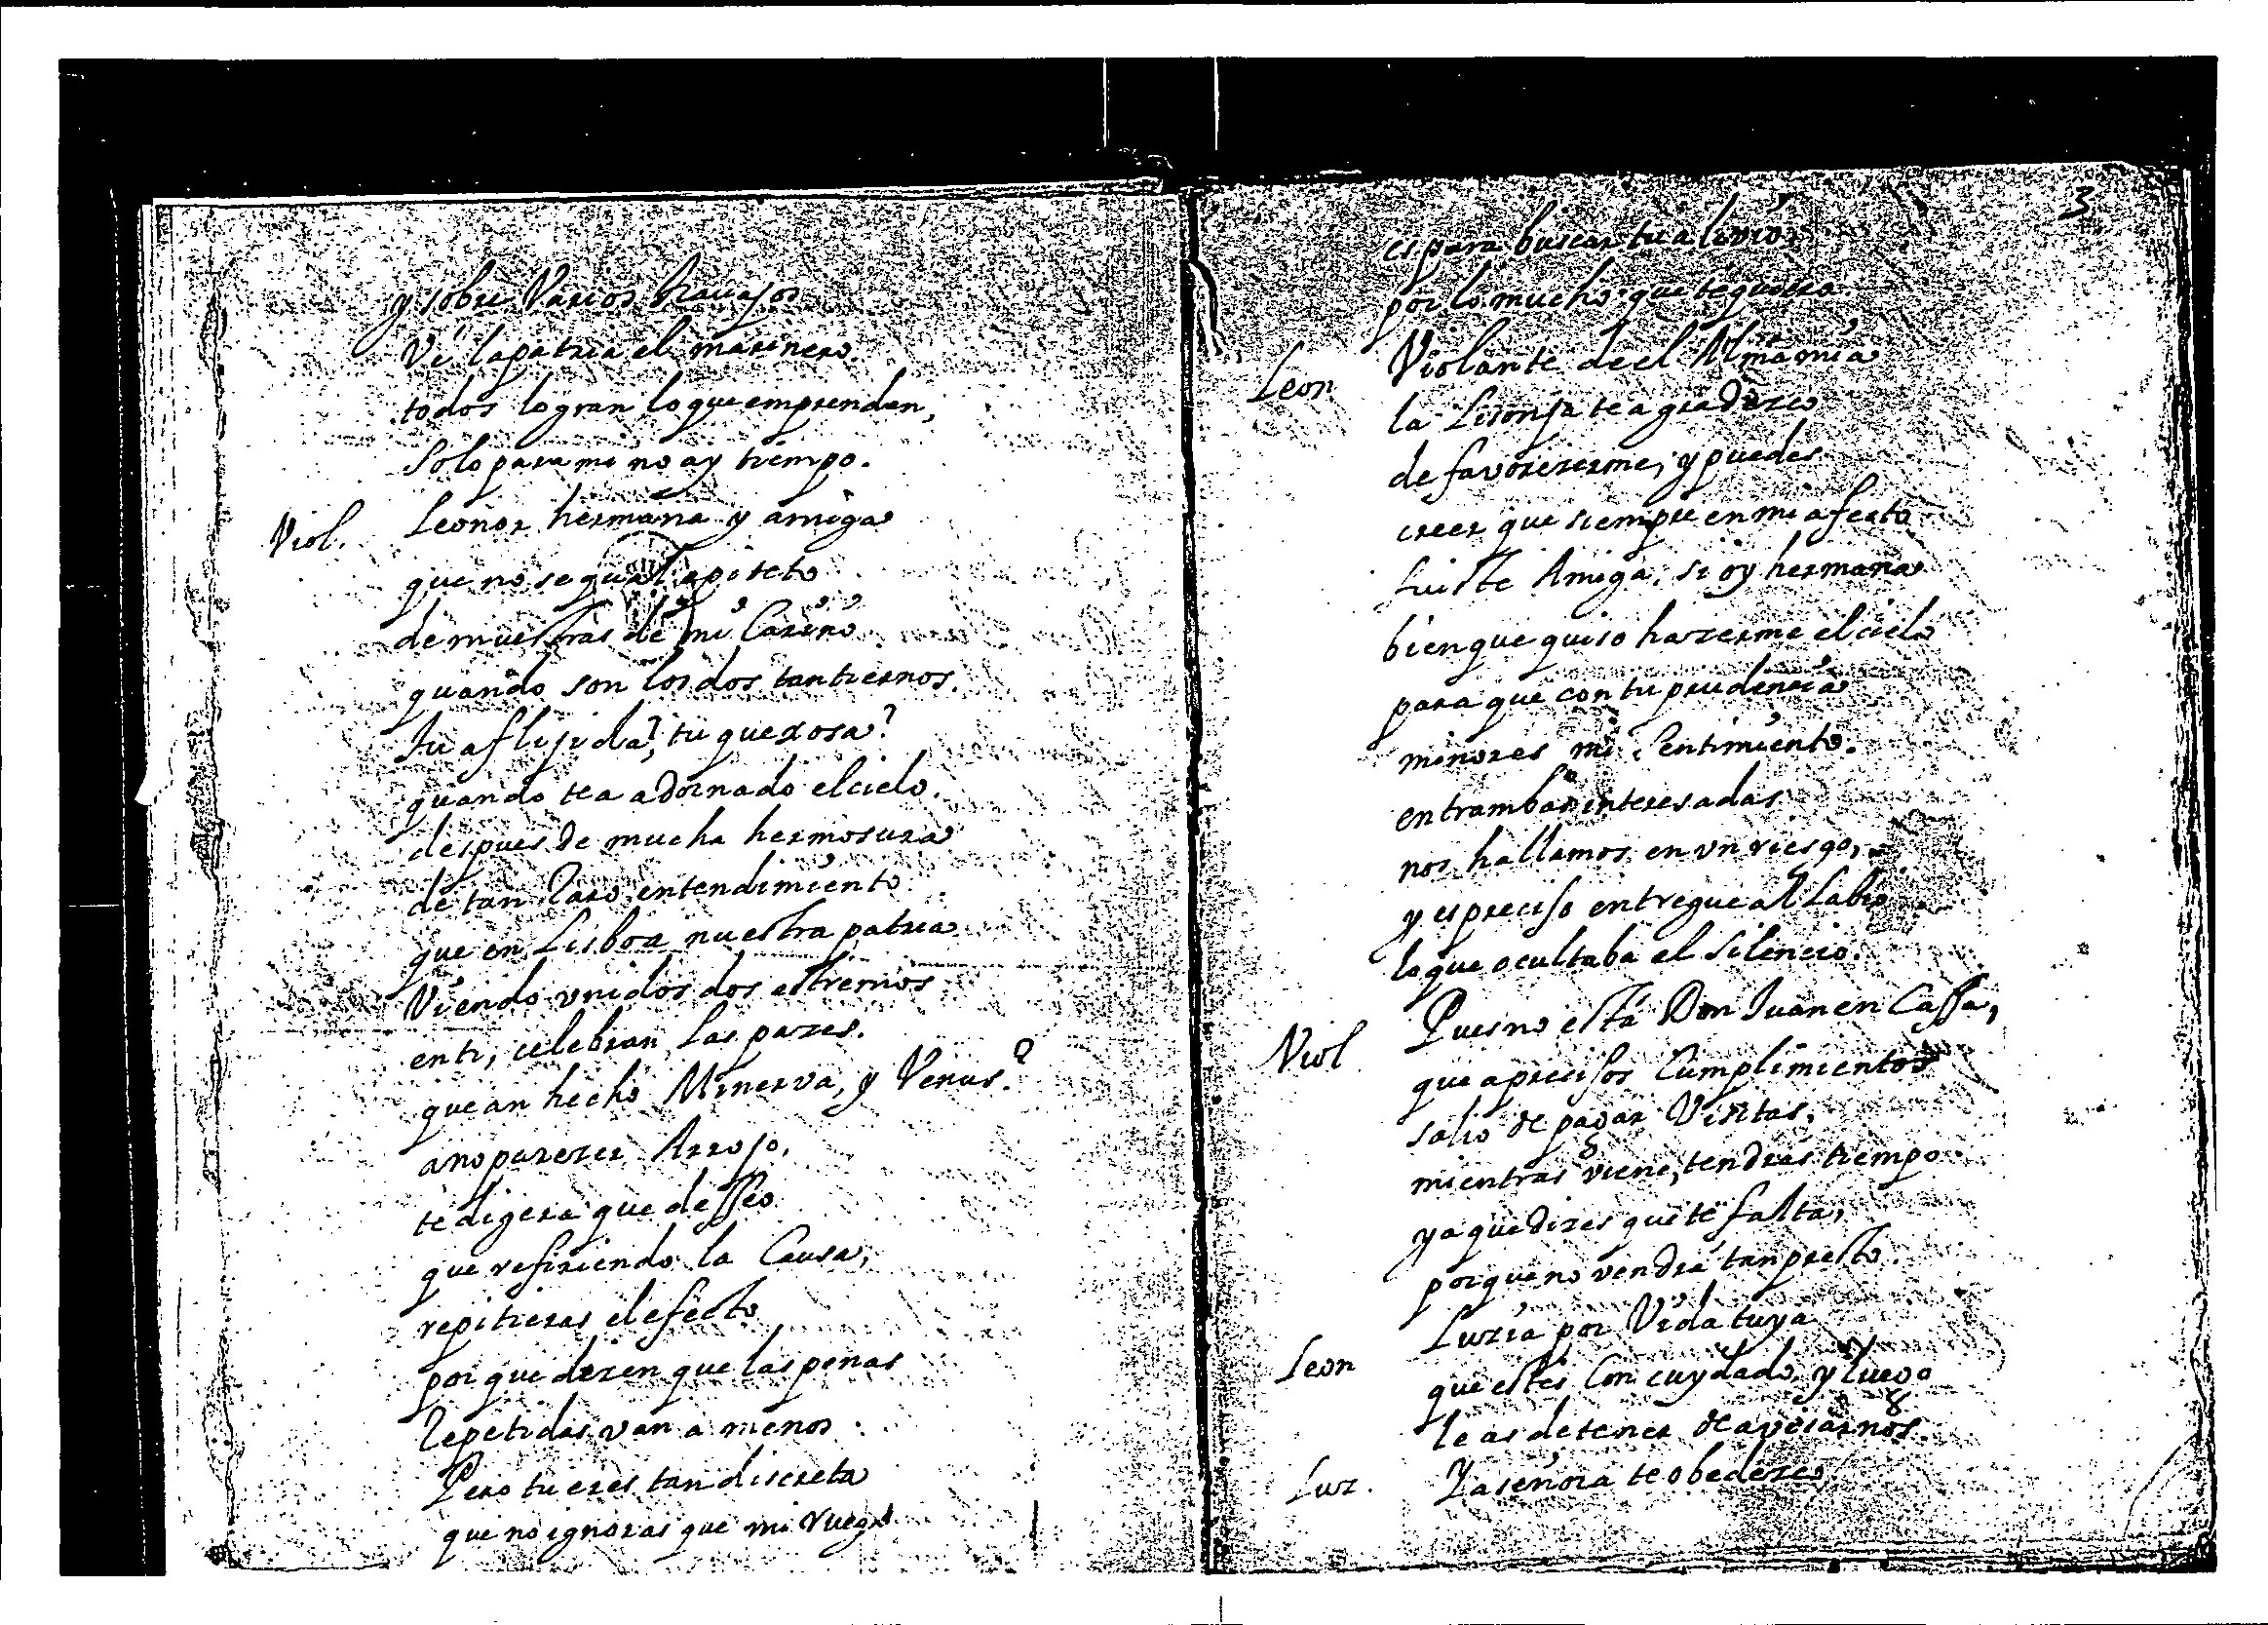 y sobre Varios trauajos
Ve la patria el marinero.
todos logran lo que emprenden,
Solo para mi no ay tiempo.
Viol. Leonor hermana y amiga
que no se qual epiteto
demuestras de mi Cariño
quando son los dos tan tiernos.
Tu aflijida? tu quexosa?
quando te a adornado el cielo.
despues de mucha hermosura
de tan Raro entendimiento
que en Lisboa nuestra patria
Viendo vnidos dos estremos
en ti, celebran las pazes.
que an hecho Minerva, y Venus?
a no parezer Arrojo,
te digera que desseo
que refiriendo la Causa,
repitieras el efecto
por que dizen que las penas
Repetidas van a menos.
Pero tu eres tan discreta
que no ignoras que mi ruego
3
es para buscar tu alivio
por lo mucho que te quiero
Leon Violante de el Alma mia
la Lisonja te agradezco
de favorezerme, y puedes
creer que siempre en mi afecto
fuiste Amiga, si oy hermana
bien que quiso hazerme el cielo
para que con tu prudencia
minores mi Sentimiento.
entrambas interesadas
nos hallamos en vn riesgo,
y es preciso entregue al Labio
lo que ocultaba el silencio.
Viol Pues no está Don Juan en Cassa,
que a precisos Cumplimientos
salio de pagar Visitas,
mientras viene, tendras tiempo
ya que dizes que te falta,
porque no vendrá tan presto.
Leon Luzia por Vida tuya
que estes Con cuydado, y luego
le as de tener de avisarnos.
Luz. Ya señora te obedezco